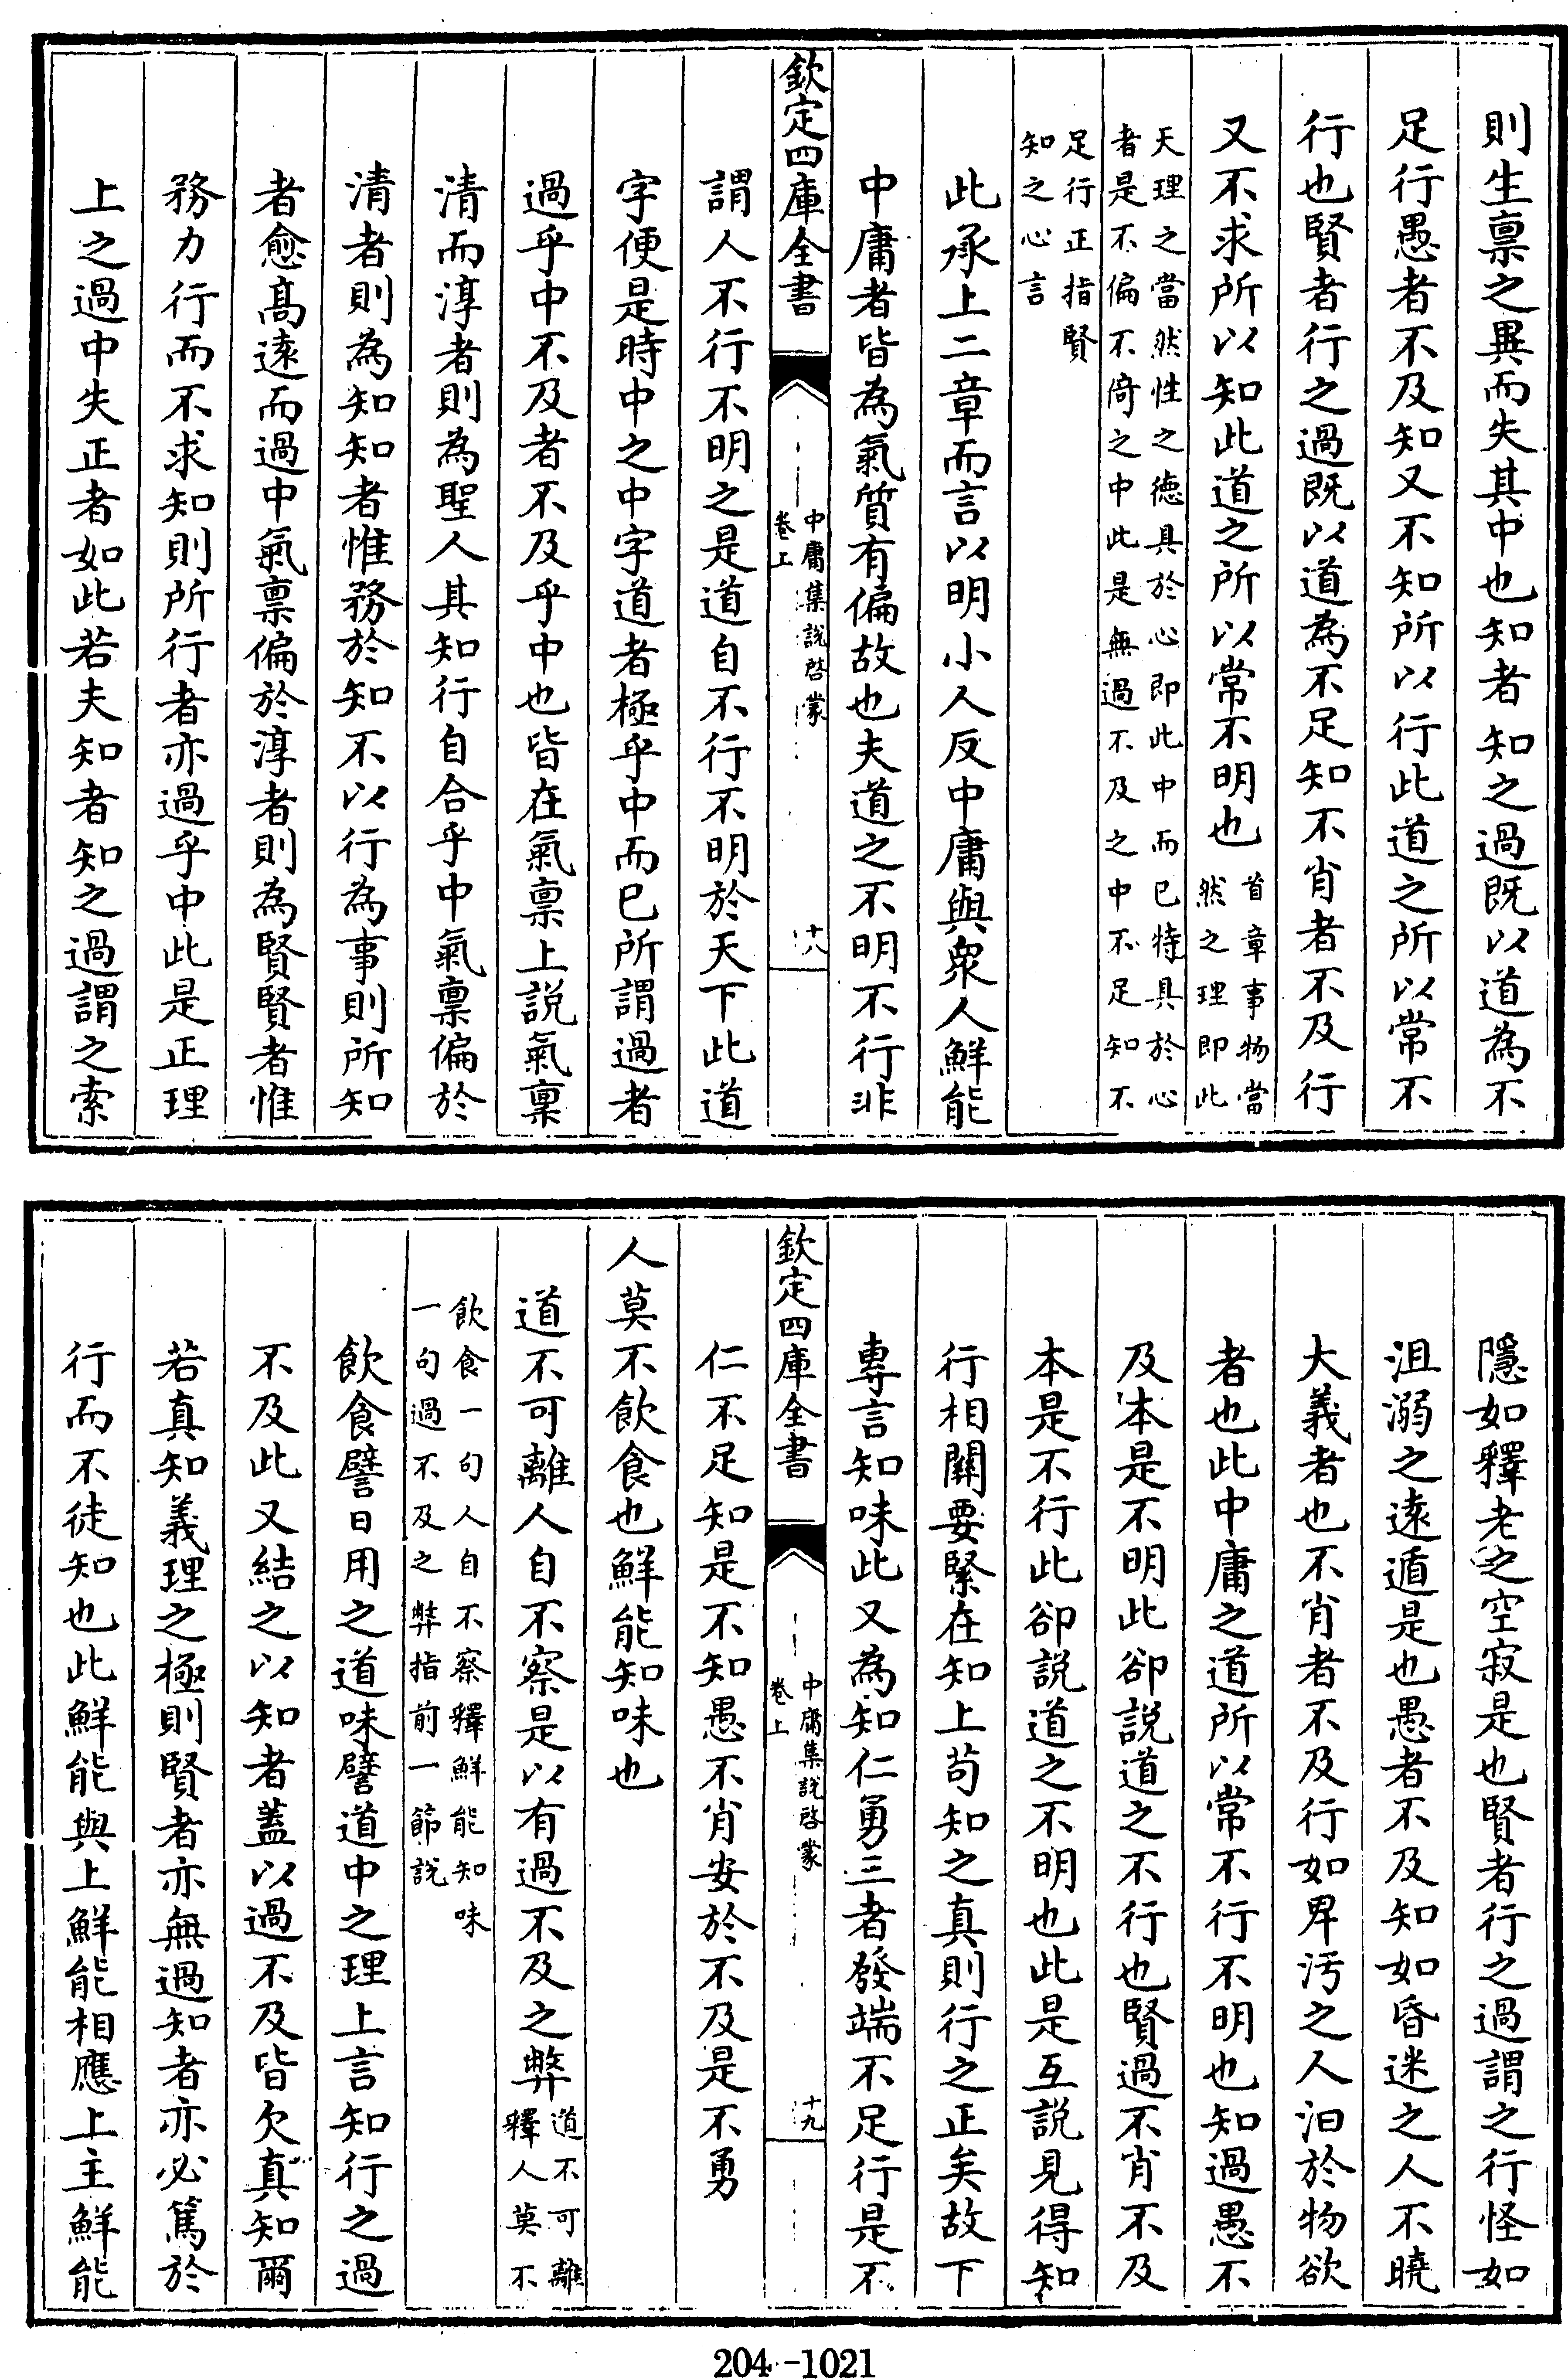 則生禀之異而失其中也知者知之過既以道為不
足行愚者不及知又不知所以行此道之所以常不
行也賢者行之過既以道為不足知不肖者不及行
又不求所以知此道之所以常不明也首章事物當
然之理即此
天理之當然性之德具於心即此中而已特具於心
者是不偏不倚之中此是無過不及之中不足知不
足行正指賢
知之心言
此承上二章而言以明小人反中庸與衆人鮮能
中庸者皆為氣質有偏故也夫道之不明不行非
欽定四庫全書
中庸集說啓蒙
卷上
十八
謂人不行不明之是道自不行不明於天下此道
字便是時中之中字道者極乎中而已所謂過者
過乎中不及者不及乎中也皆在氣禀上説氣禀
清而淳者則為聖人其知行自合乎中氣禀偏於
清者則為知知者惟務於知不以行為事則所知
者愈高逺而過中氣禀偏於淳者則為賢賢者惟
務力行而不求知則所行者亦過乎中此是正理
上之過中失正者如此若夫知者知之過謂之索
隱如釋老之空寂是也賢者行之過謂之行怪如
沮溺之逺遁是也愚者不及知如昏迷之人不曉
大義者也不肖者不及行如卑汚之人汩於物欲
者也此中庸之道所以常不行不明也知過愚不
及本是不明此卻説道之不行也賢過不肖不及
本是不行此卻説道之不明也此是互説見得知
行相關要緊在知上苟知之真則行之正矣故下
專言知味此又為知仁勇三者發端不足行是不
欽定四庫全書
中庸集說啓蒙
卷上
十九
仁不足知是不知愚不肖安於不及是不勇
人莫不飲食也鮮能知味也
道不可離人自不察是以有過不及之弊道不可離
釋人莫不
飲食一句人自不察釋鮮能知味
一句過不及之弊指前一節説
飲食譬日用之道味譬道中之理上言知行之過
不及此又結之以知者蓋以過不及皆欠真知爾
若真知義理之極則賢者亦無過知者亦必篤於
行而不徒知也此鮮能與上鮮能相應上主鮮能
204-1021